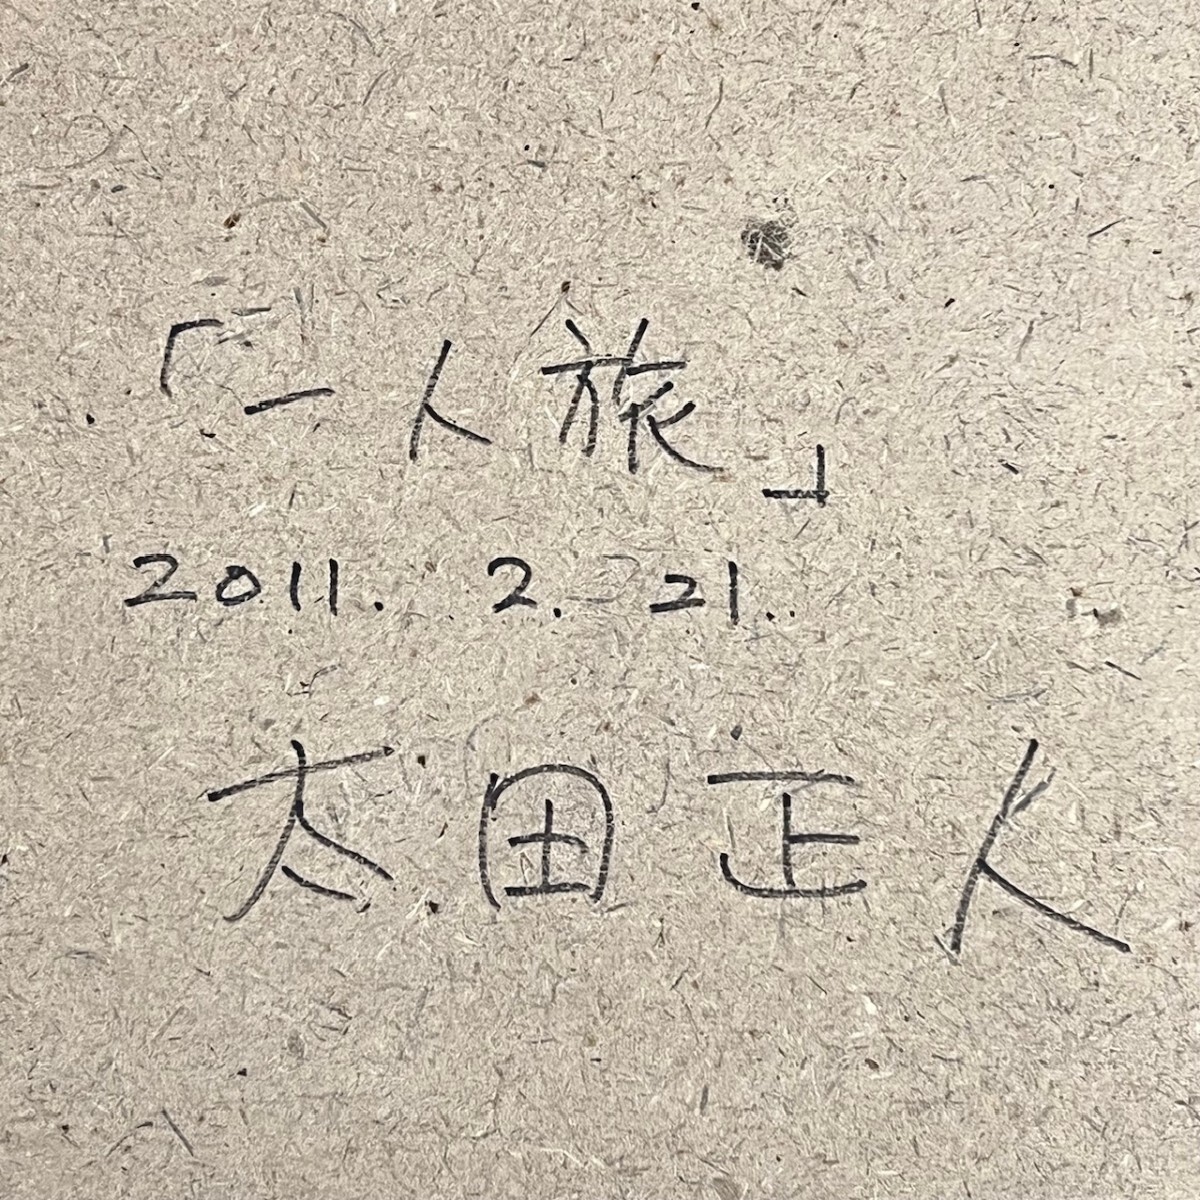 「一人旅」
2011. 2. 21.
太田正人